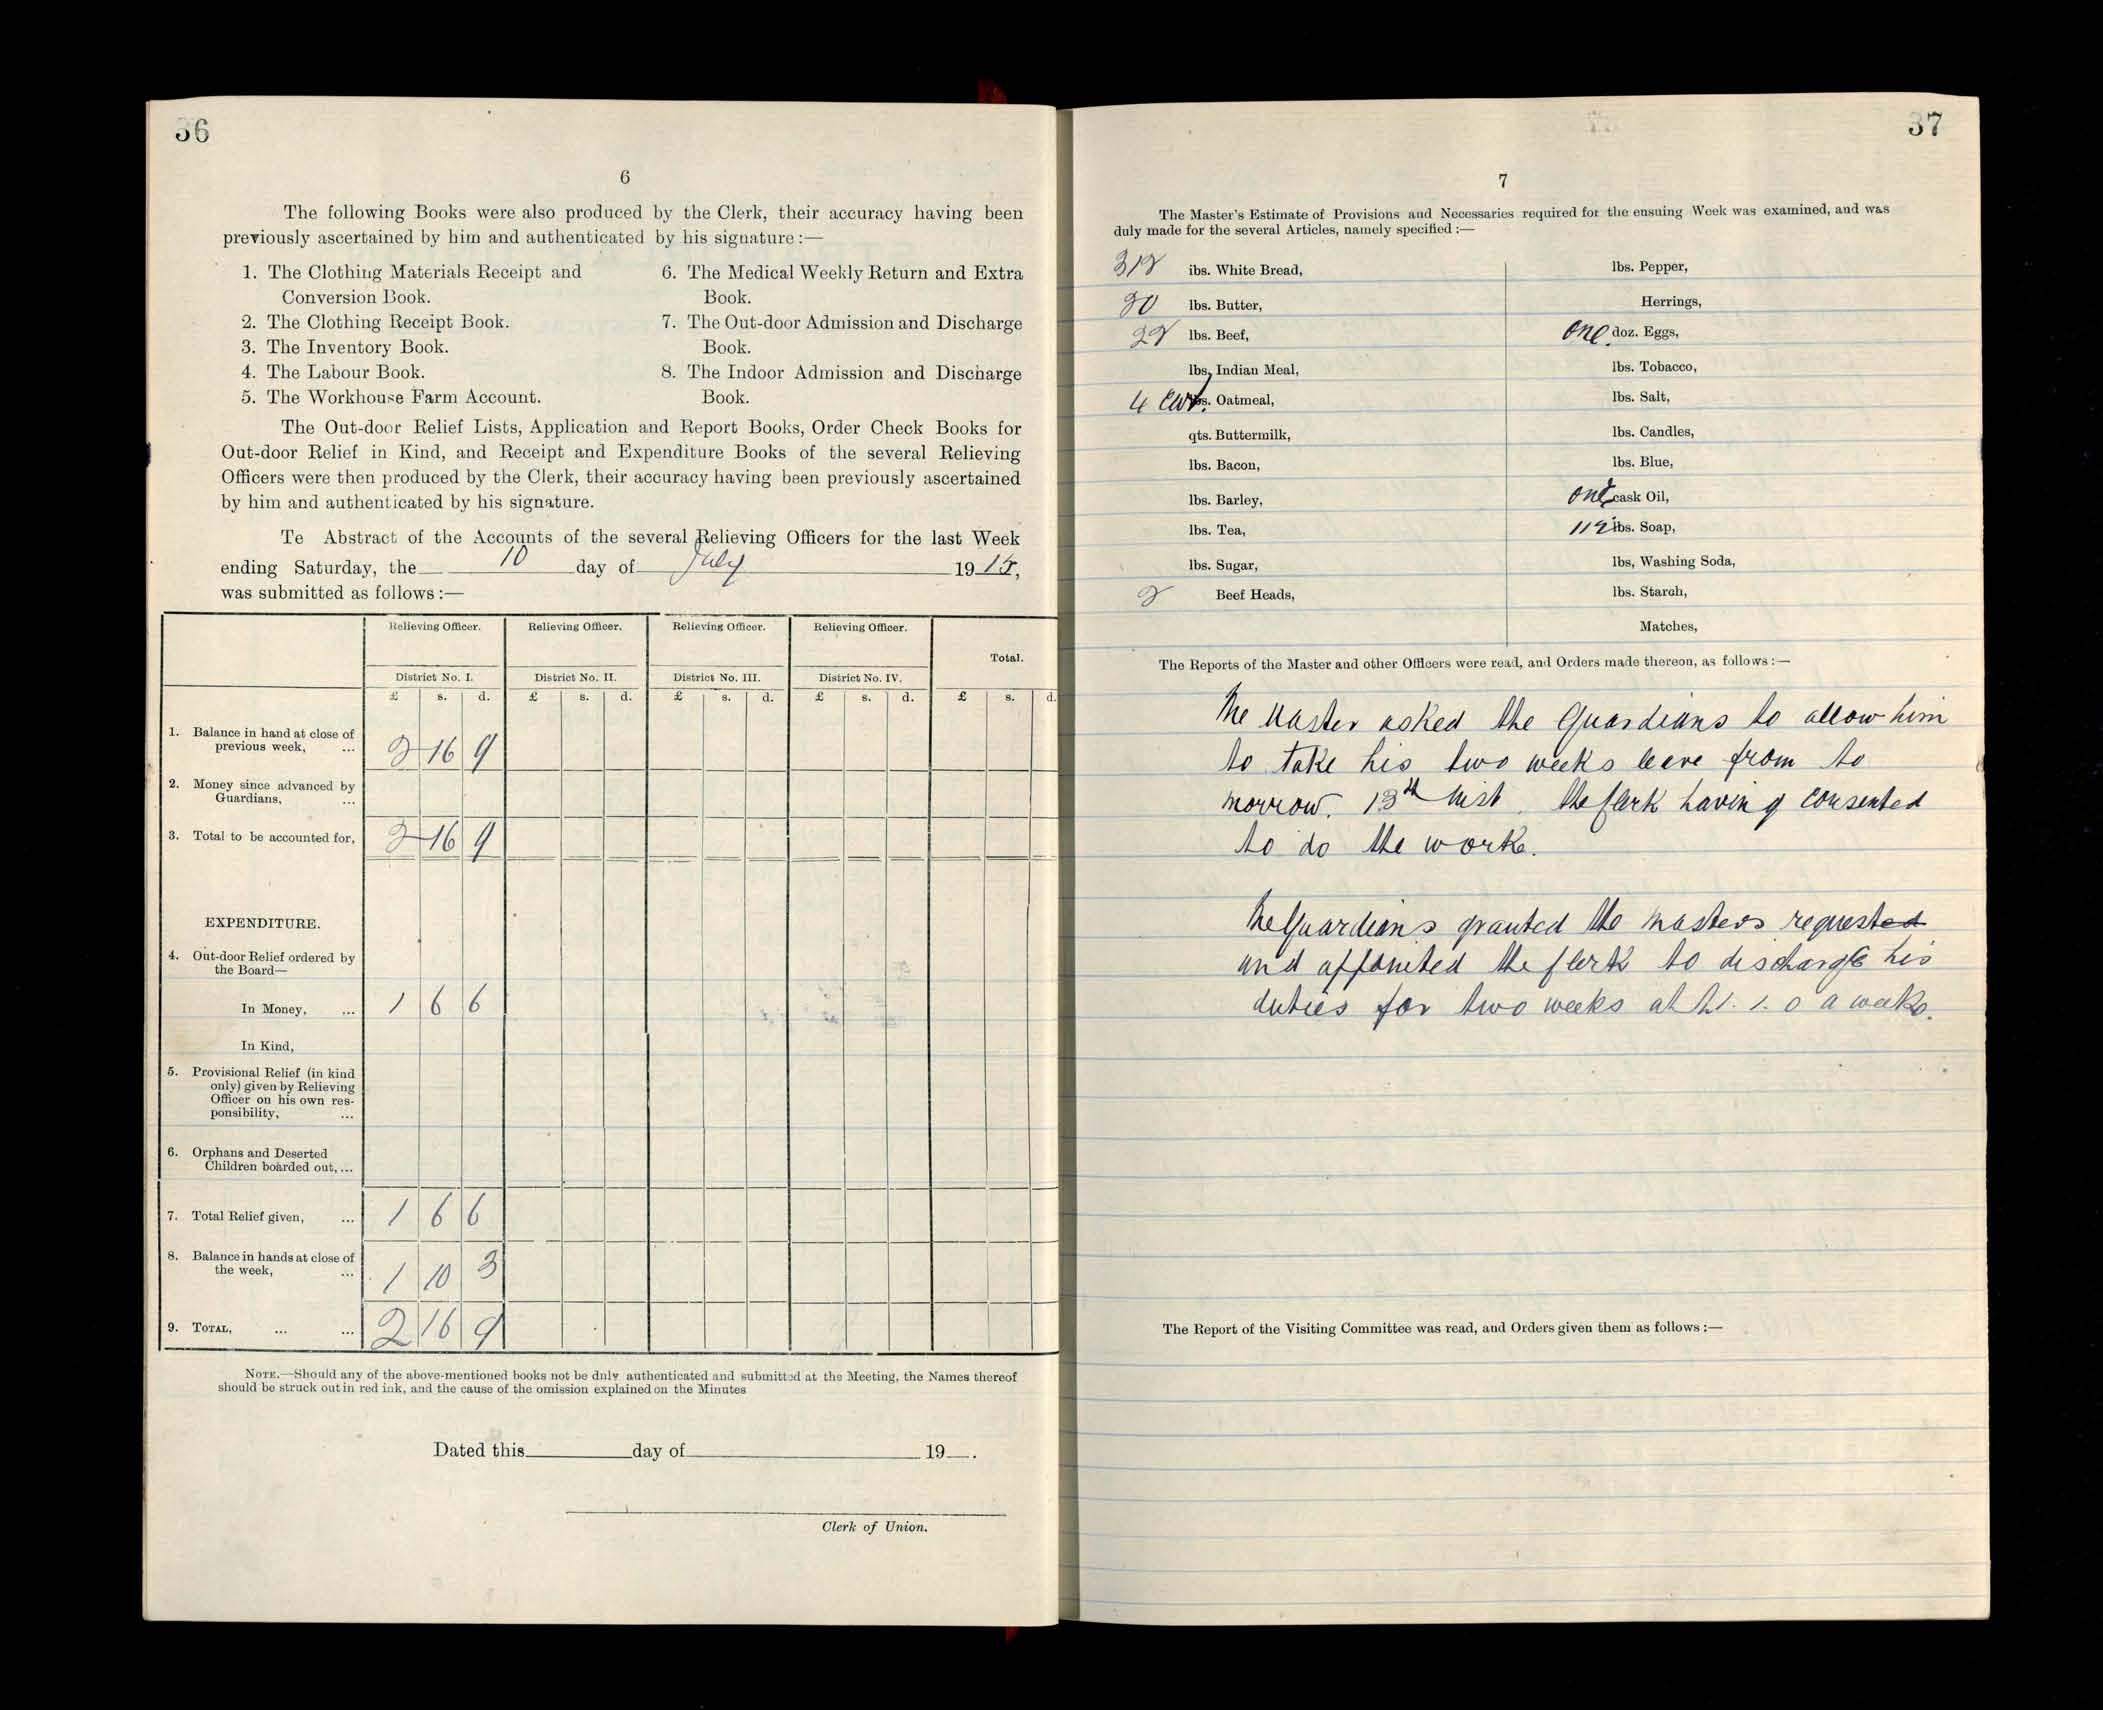 36
6
The following Books were also produced by the Clerk, their accuracy having been
previously ascertained by him and authenticated by his signature :—
1. The Clothing Materials Receipt and
Conversion Book.
2. The Clothing Receipt Book.
3. The Inventory Book.
4. The Labour Book.
5. The Workhouse Farm Account.
6. The Medical Weekly Return and Extra
Book.
7. The Out-door Admission and Discharge
Book.
8. The Indoor Admission and Discharge
Book.
The Out-door Relief Lists, Application and Report Books, Order Check Books for
Out-door Relief in Kind, and Receipt and Expenditure Books of the several Relieving
Officers were then produced by the Clerk, their accuracy having been previously ascertained
by him and authenticated by his signature.
Te Abstract of the Accounts of the several Relieving Officers for the last Week
ending Saturday, the 10 day of July 1915,
was submitted as follows :—
Relieving Officer. Relieving Officer. Relieving Officer. Relieving Officer.
Total.
District No. I. District No. II. District No. III. District No. IV.
£ s. d. £ s. d. £ s. d. £ s. d. £ s. d.
1. Balance in hand at close of
previous week, ... 2 16 9
2. Money since advanced by
Guardians, ...
3. Total to be accounted for, 2 16 9
EXPENDITURE.
4. Out-door Relief ordered by
the Board—
In Money, ... 1 6 6
In Kind,
5. Provisional Relief (in kind
only) given by Relieving
Officer on his own res-
ponsibility, ...
6. Orphans and Deserted
Children boarded out, ...
7. Total Relief given, ... 1 6 6
8. Balance in hands at close of
the week, ... 1 10 3
9. TOTAL, ... ... 2 16 9
NOTE.—Should any of the above-mentioned books not be duly authenticated and submitted at the Meeting, the Names thereof
should be struck out in red ink, and the cause of the omission explained on the Minutes
Dated this day of 19 .
Clerk of Union.
37
7
The Master's Estimate of Provisions and Necessaries required for the ensuing Week was examined, and was
duly made for the several Articles, namely specified :—
312 lbs. White Bread,
20 lbs. Butter,
22 lbs. Beef,
lbs. Indian Meal,
4 cwt. lbs. Oatmeal,
qts. Buttermilk,
lbs. Bacon,
lbs. Barley,
lbs. Tea,
lbs. Sugar,
2 Beef Heads,
lbs. Pepper,
Herrings,
one doz. Eggs,
lbs. Tobacco,
lbs. Salt,
lbs. Candles,
lbs. Blue,
one cask Oil,
112 lbs. Soap,
lbs, Washing Soda,
lbs. Starch,
Matches,
The Reports of the Master and other Officers were read, and Orders made thereon, as follows :—
The Master asked the Guardians to allow him
to take his two weeks leave from to
morrow. 13th inst. the Clerk having consented
to do the work.
The Guardians granted the Masters requested
and appointed the Clerk to discharge his
duties for two weeks at £1. 1. 0 a week.
The Report of the Visiting Committee was read, and Orders given them as follows :—